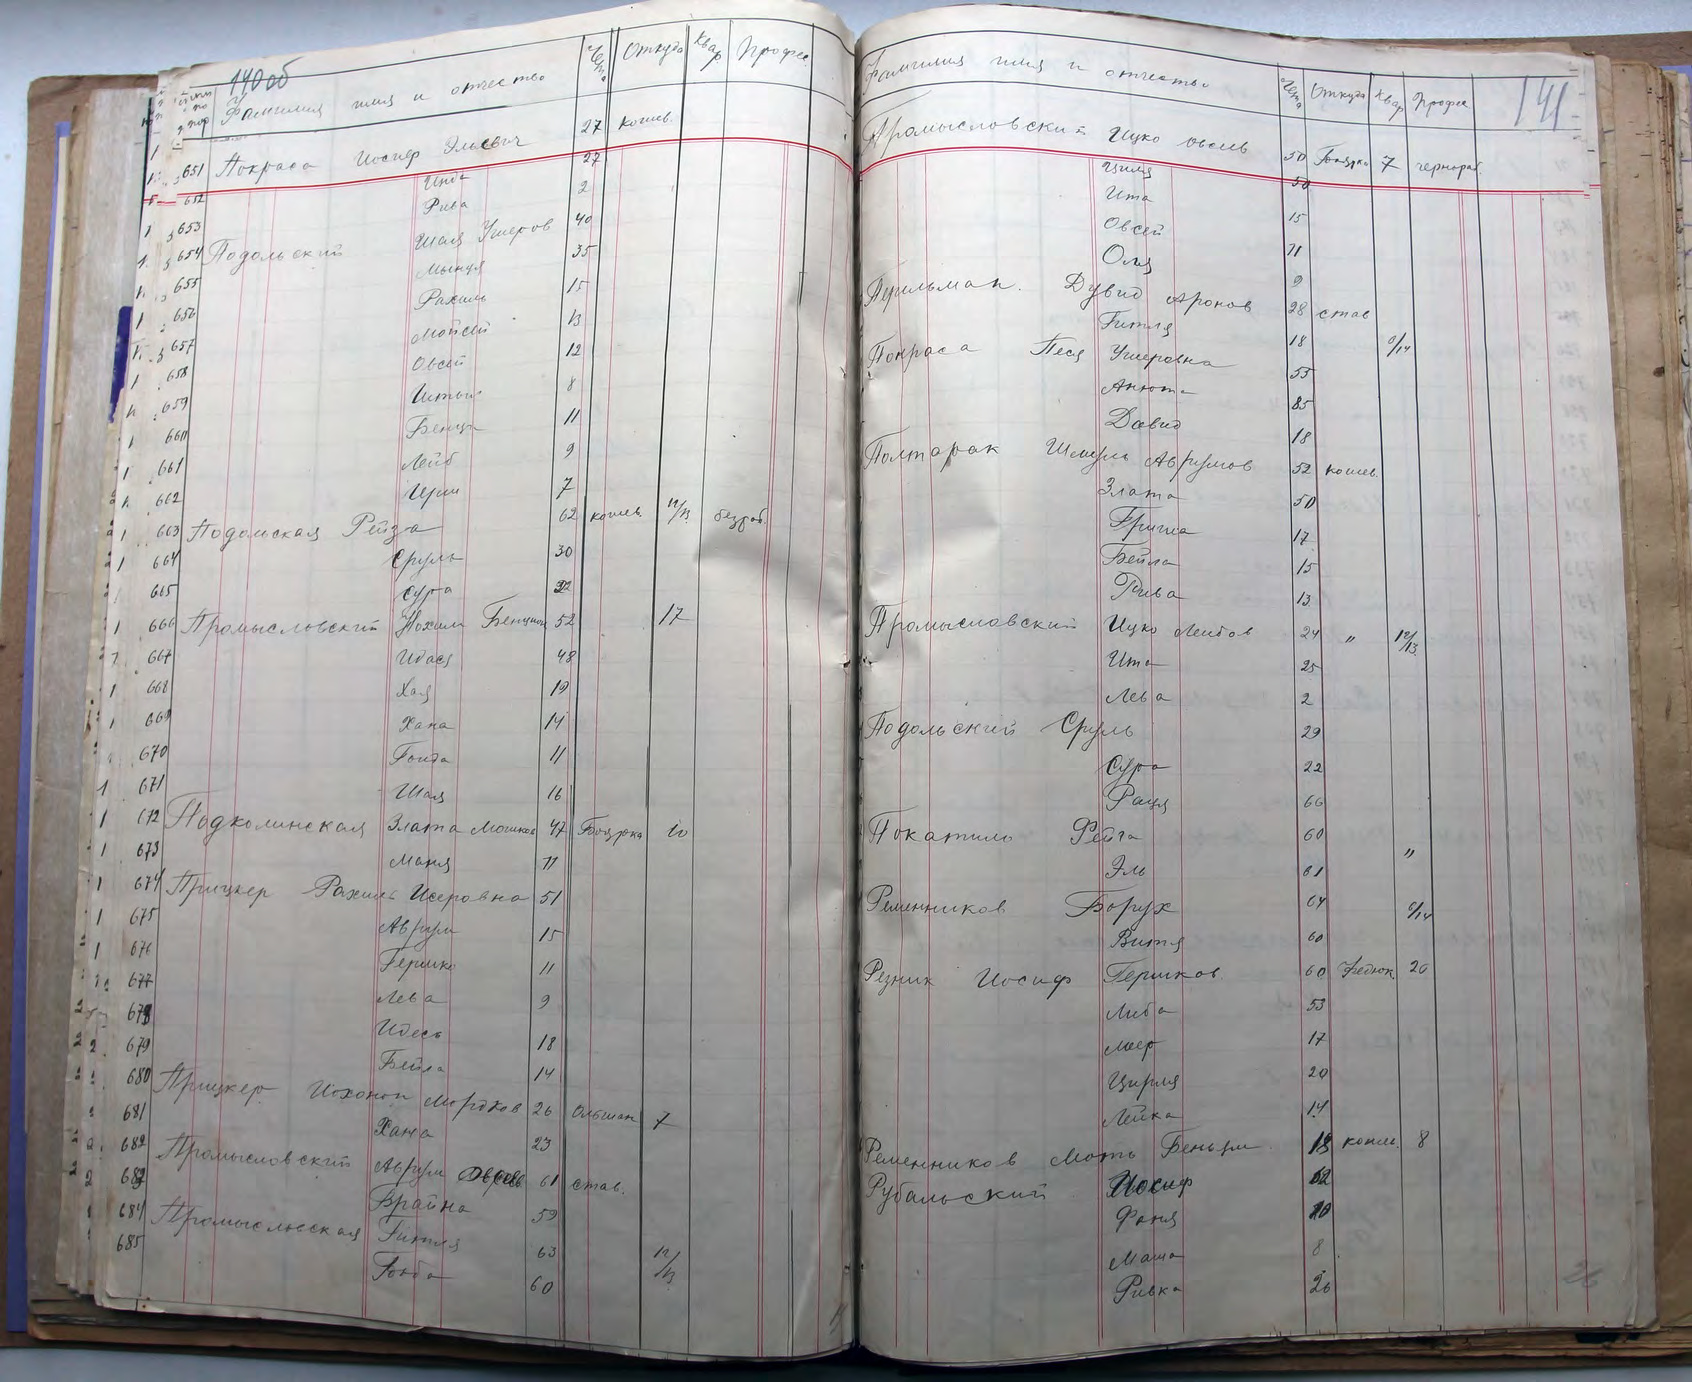 140 об
Фамилия имя и отчество Лета Откуда Квар Профес
651 Покраса Иосиф Эльевич 27 кошев.
652 Инда 27
Рива 2
653 Подольский Шая Ушеров 40
654 Мынця 35
655 Рахиль 15
656 Мойсей 13
657 Овсей 12
658 8
659 Бенци 11
660 Лейб 9
661 7
662
663 Подольская Рейза 62 кошев. 12/13 безраб.
664 Сруль 30
665 Сура 22
666 Промысловский Нохим Бенцион 52 17
667 Идася 48
668 Хая 19
669 Хана 14
670 Голда 11
671 Шая 16
672 Подколинская Злата Мошков 47 Боярка 10
673 Маня 11
674 Прицкер Рахиль Исеровна 51
675 Аврум 15
676 Гершко 11
677 Лева 9
678 Идесь 18
679 Бейла 14
680 Прицкер Иохонон Мордков 26 Ольшан 7
681 Хана 23
682 Промысловский Аврум 61 став.
683 Брайна 59
684 Промысловская Гитля 63 12/13
685 Голда 60
141
Фамилия имя и отчество Лета Откуда Квар Профес
Промысловский Ицко Овсев 50 Боярка 7 чернораб.
Циля 50
Ита 15
Овсей 11
Оля 9
Перильман. Дувид Аронов 28 став
Гитля 18 6/14
Покраса Песя Ушеровна 55
Анюта 85
Давид 18
Полтарак Шмуль Аврумов 52 кошев.
Злата 50
Гриша 17
Бейла 15
Рива 13
Промысловский Ицко Лейбов 24 " 12/13
Ита 25
Лева 2
Подольский Сруль 29
Сура 22
Рация 66
Покатило Рейза 60
Эль 61 "
Ременников Борух 64 6/14
Витя 60
Резник Иосиф Гершков 60 Федюк. 26
Либа 53
Меер 17
Цирля 20
Лейка 14
Ременников Моть Беньум 18 кошев. 8
Рубальский Иосиф 62
Фаня 20
Маша 8
Ривка 26